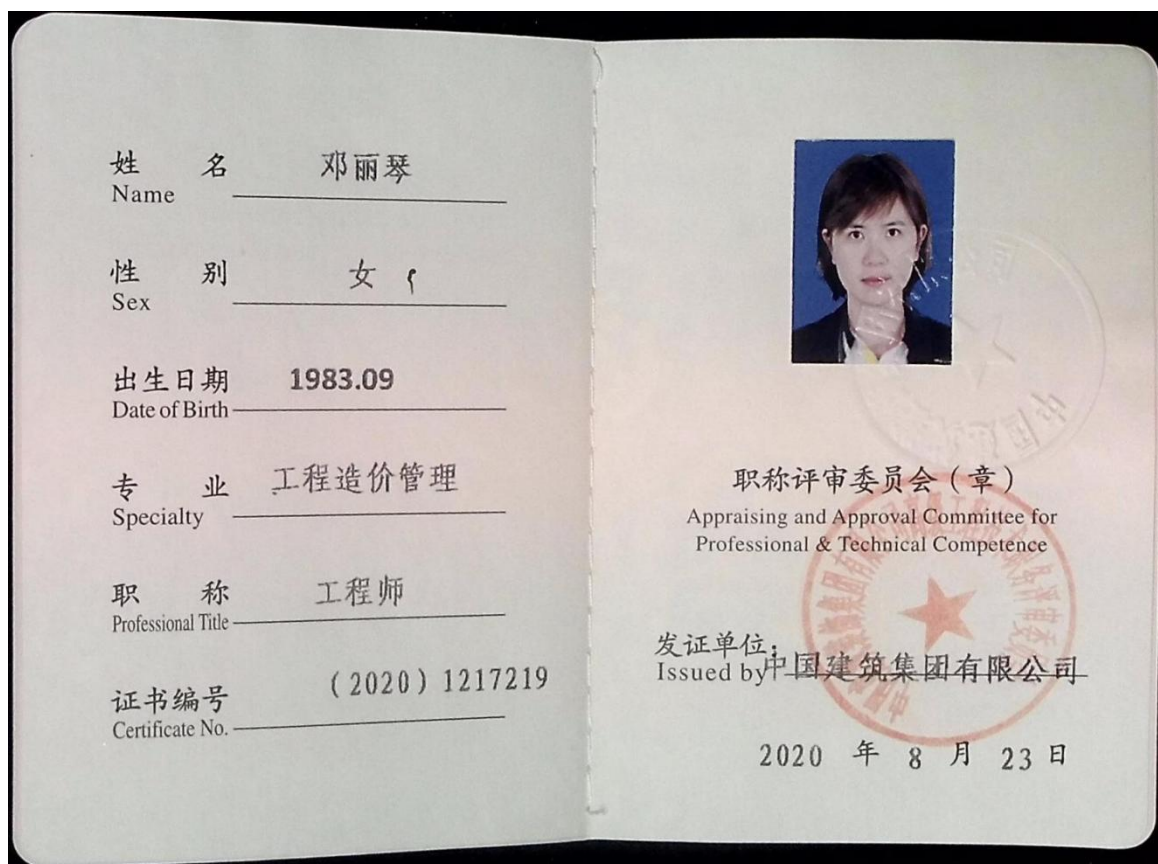 姓名 邓丽琴
Name
性别 女
Sex
出生日期 1983.09
Date of Birth
专业 工程造价管理
Specialty
职称 工程师
Professional Title
证书编号 (2020) 1217219
Certificate No.
中国建
职称评审委员会(章)
Appraising and Approval Committee for
Professional & Technical Competence
发证单位:
Issued by 中国建筑集团有限公司
2020 年 8 月 23 日